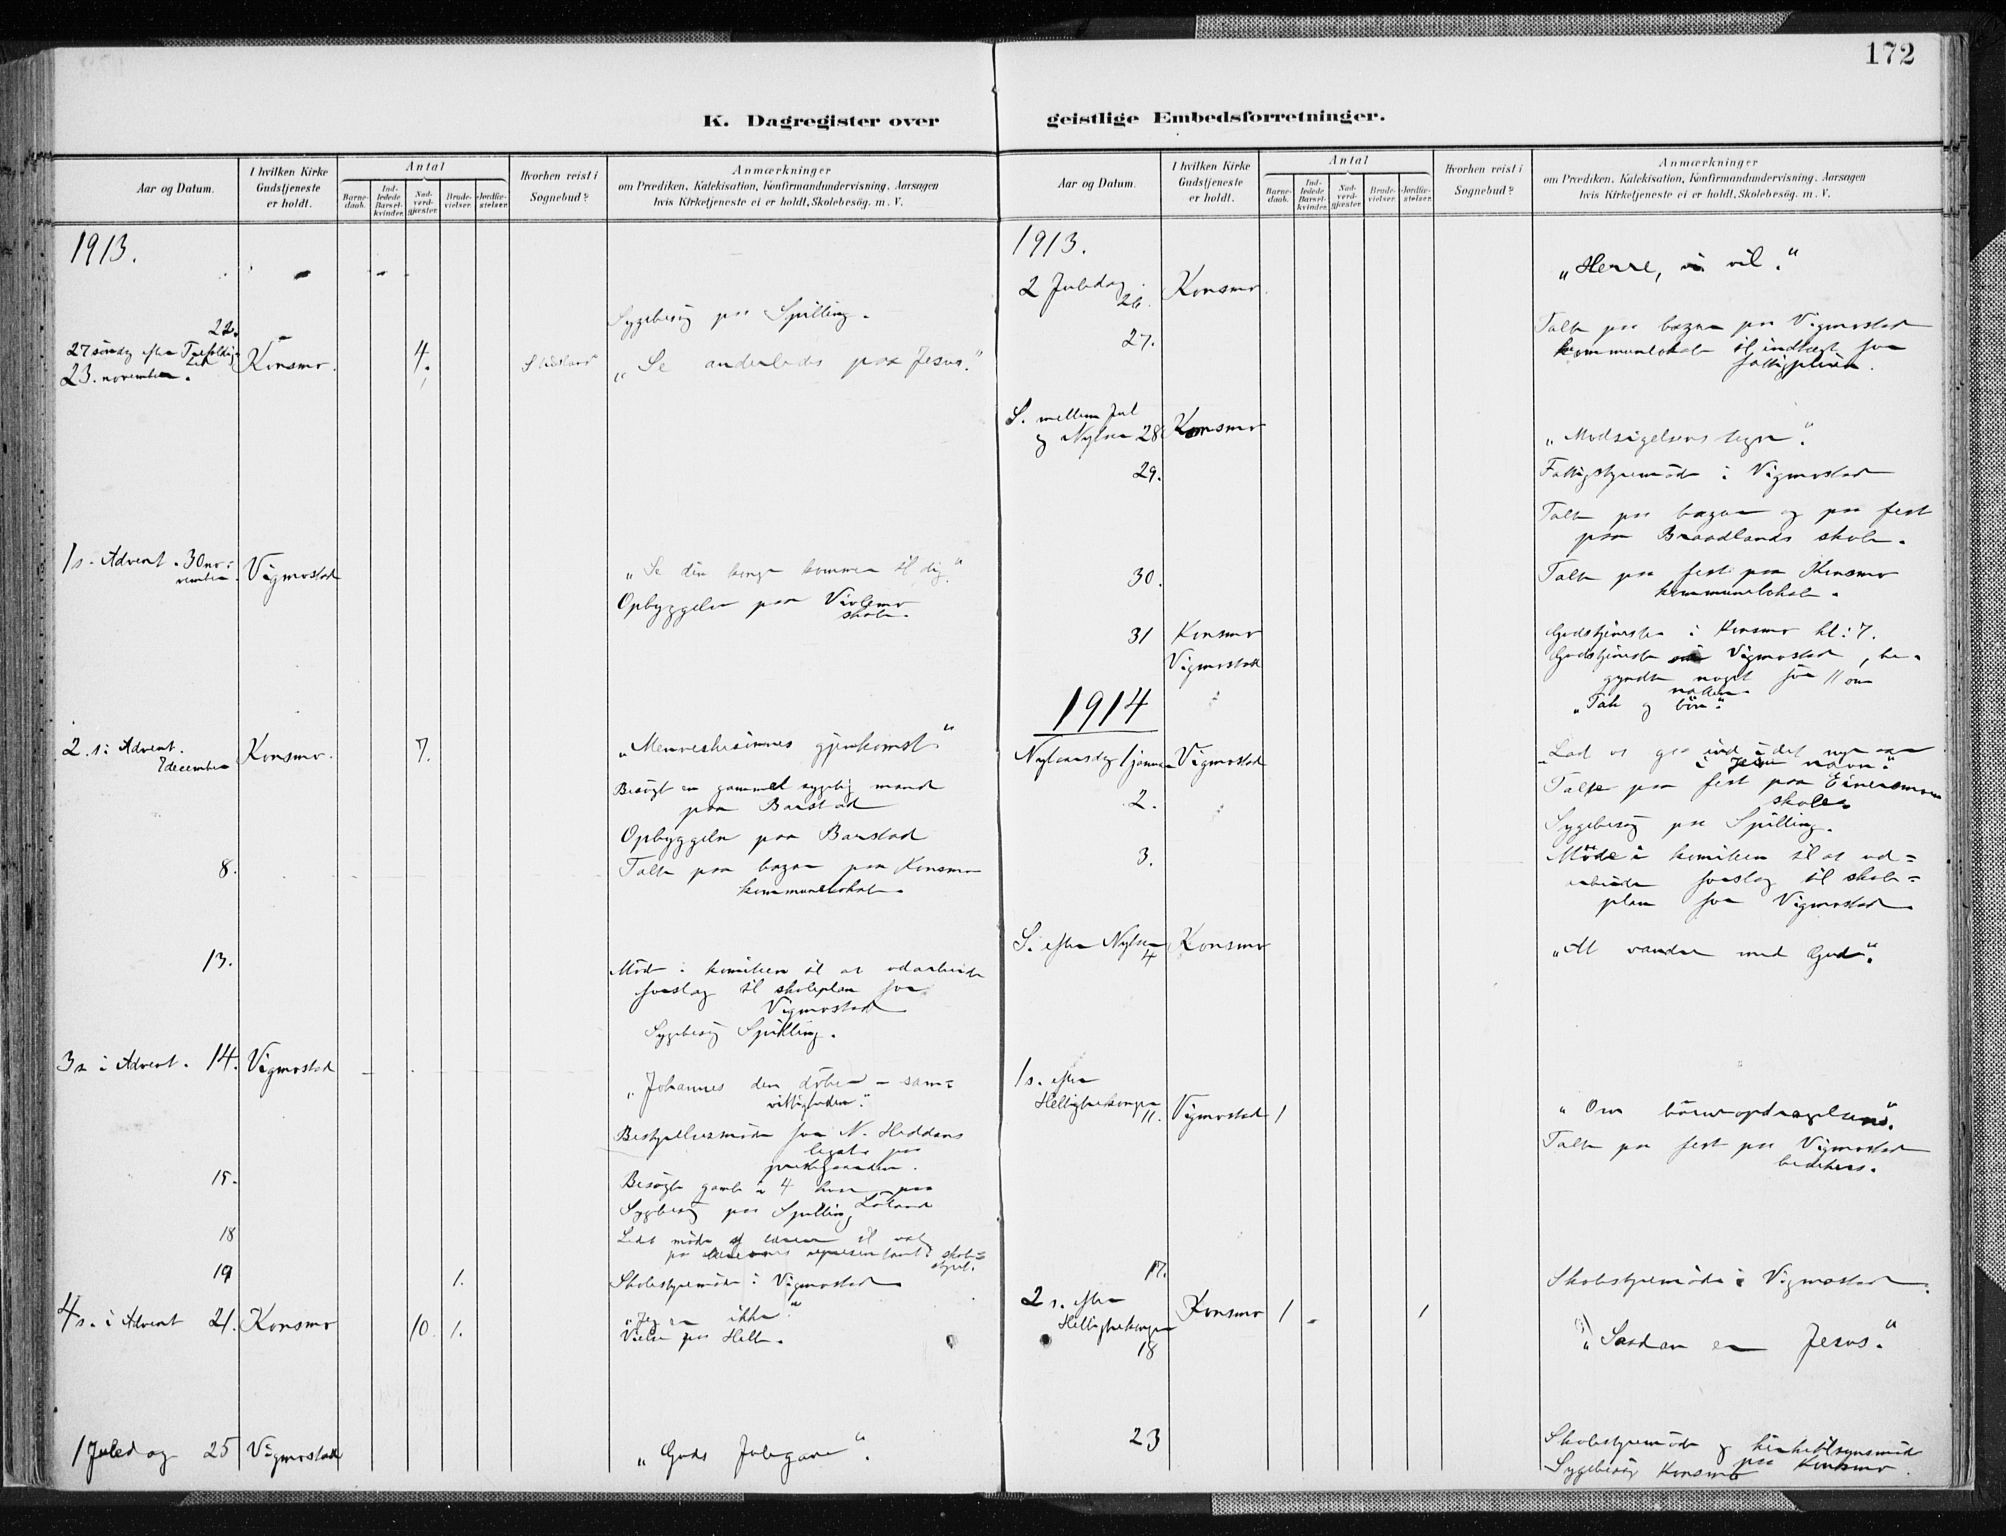 172
K. Dagregister over
geistlige Embedsforretninger.
Aar og Datum.
I hvilken Kirke Gudstjeneste er holdt.
Antal
Barnedaab.
Indledede Barselkvinder.
Nadverdgjæster.
Brudevielser.
Jordfæstelser.
Hvorhen reist i Sognebud?
Anmærkninger
om Prædiken, Katekisation, Konfirmandundervisning, Aarsagen
hvis Kirketjeneste ei er holdt, Skolebesøg. m. V.
1913.
22.
Sygebesög paa Spilling.
27 söndag efter Trefoldighed
23. november. Konsmo. 4.
„Se anderledes paa Jesus."
1 s. Advent. 30 november. Vigmostad
„Se din konge kommer til dig."
Opbyggelse paa
skole.
2. s. i Advent.
7 december Konsmo. 7.
„Menneskesönnes gjenkomst."
Besögt en gammel sygelig mand
paa Barstad
Opbyggelse paa Barstad
8.
Talte paa bazar paa Konsmo
kommunelokale.
13.
Möde i komiteen til at udarbeide
forslag til skoleplan for
Vigmostad
Sygebesög Spilling.
3 s. i Advent. 14. Vigmostad
„Johannes den döber – sam=
vittigheden."
Bestyrelsesmöde for N. Heddans
legat paa
prestegaarden.
15.
Besögte gamle i 4 huse paa
Sygebesög paa Spilling
18
Ledet möde af lærere til valg
paa lærernes repræsentant i skole=
styret.
19 1.
Skolestyremöde i Vigmostad
4 s. i Advent 21. Konsmo 10. 1.
„Jeg er ikke"
Vielse paa Helle.
1 Juledag 25 Vigmostad
„Guds Julegave".
Aar og Datum.
I hvilken Kirke Gudstjeneste er holdt.
Antal
Barnedaab.
Indledede Barselkvinder.
Nadverdgjæster.
Brudevielser.
Jordfæstelser.
Hvorhen reist i Sognebud?
Anmærkninger
om Prædiken, Katekisation, Konfirmandundervisning, Aarsagen
hvis Kirketjeneste ei er holdt, Skolebesøg. m. V.
1913.
2 Juledag 26. Konsmo.
„Herre, vi vil."
27.
Talte paa bazar paa Vigmostad
kommunelokale til indtægt for
S. mellem Jul
og Nytaar 28 Konsmo
„Modsigelsens tegn".
29.
Fattigstyremöde i Vigmostad
Talte paa bazar og paa fest
paa Braadlands skole.
30.
Talte paa fest paa Konsmo
kommunelokale.
31 Konsmo
Gudstjeneste i Konsmo kl: 7.
Vigmostad
Gudstjeneste i Vigmostad, be=
gyndte noget för 11 om
natten.
„Tak og bön".
1914
Nytaarsdag 1 januar Vigmostad
„Lad os gaa ind i det nye aar
i Jesu navn."
2.
Talte paa fest paa
skole.
Sygebesög paa Spilling.
3.
Möde i komiteen til at ud=
arbeide forslag til skole=
plan for Vigmostad.
S. efter Nytaar 4 Konsmo
„At vandre med Gud".
1 s. efter
Helligtrekonger 11. Vigmostad 1
„Om börneopdragelsen".
Talte paa fest paa Vigmostad
bedehus.
17.
Skolestyremöde i Vigmostad.
2 s. efter
Helligtrekonger 18 Konsmo 1 1
„Saadan er Jesus."
23
Skolestyremöde og kirketilsynsmöde
paa Konsmo.
Sygebesög Konsmo